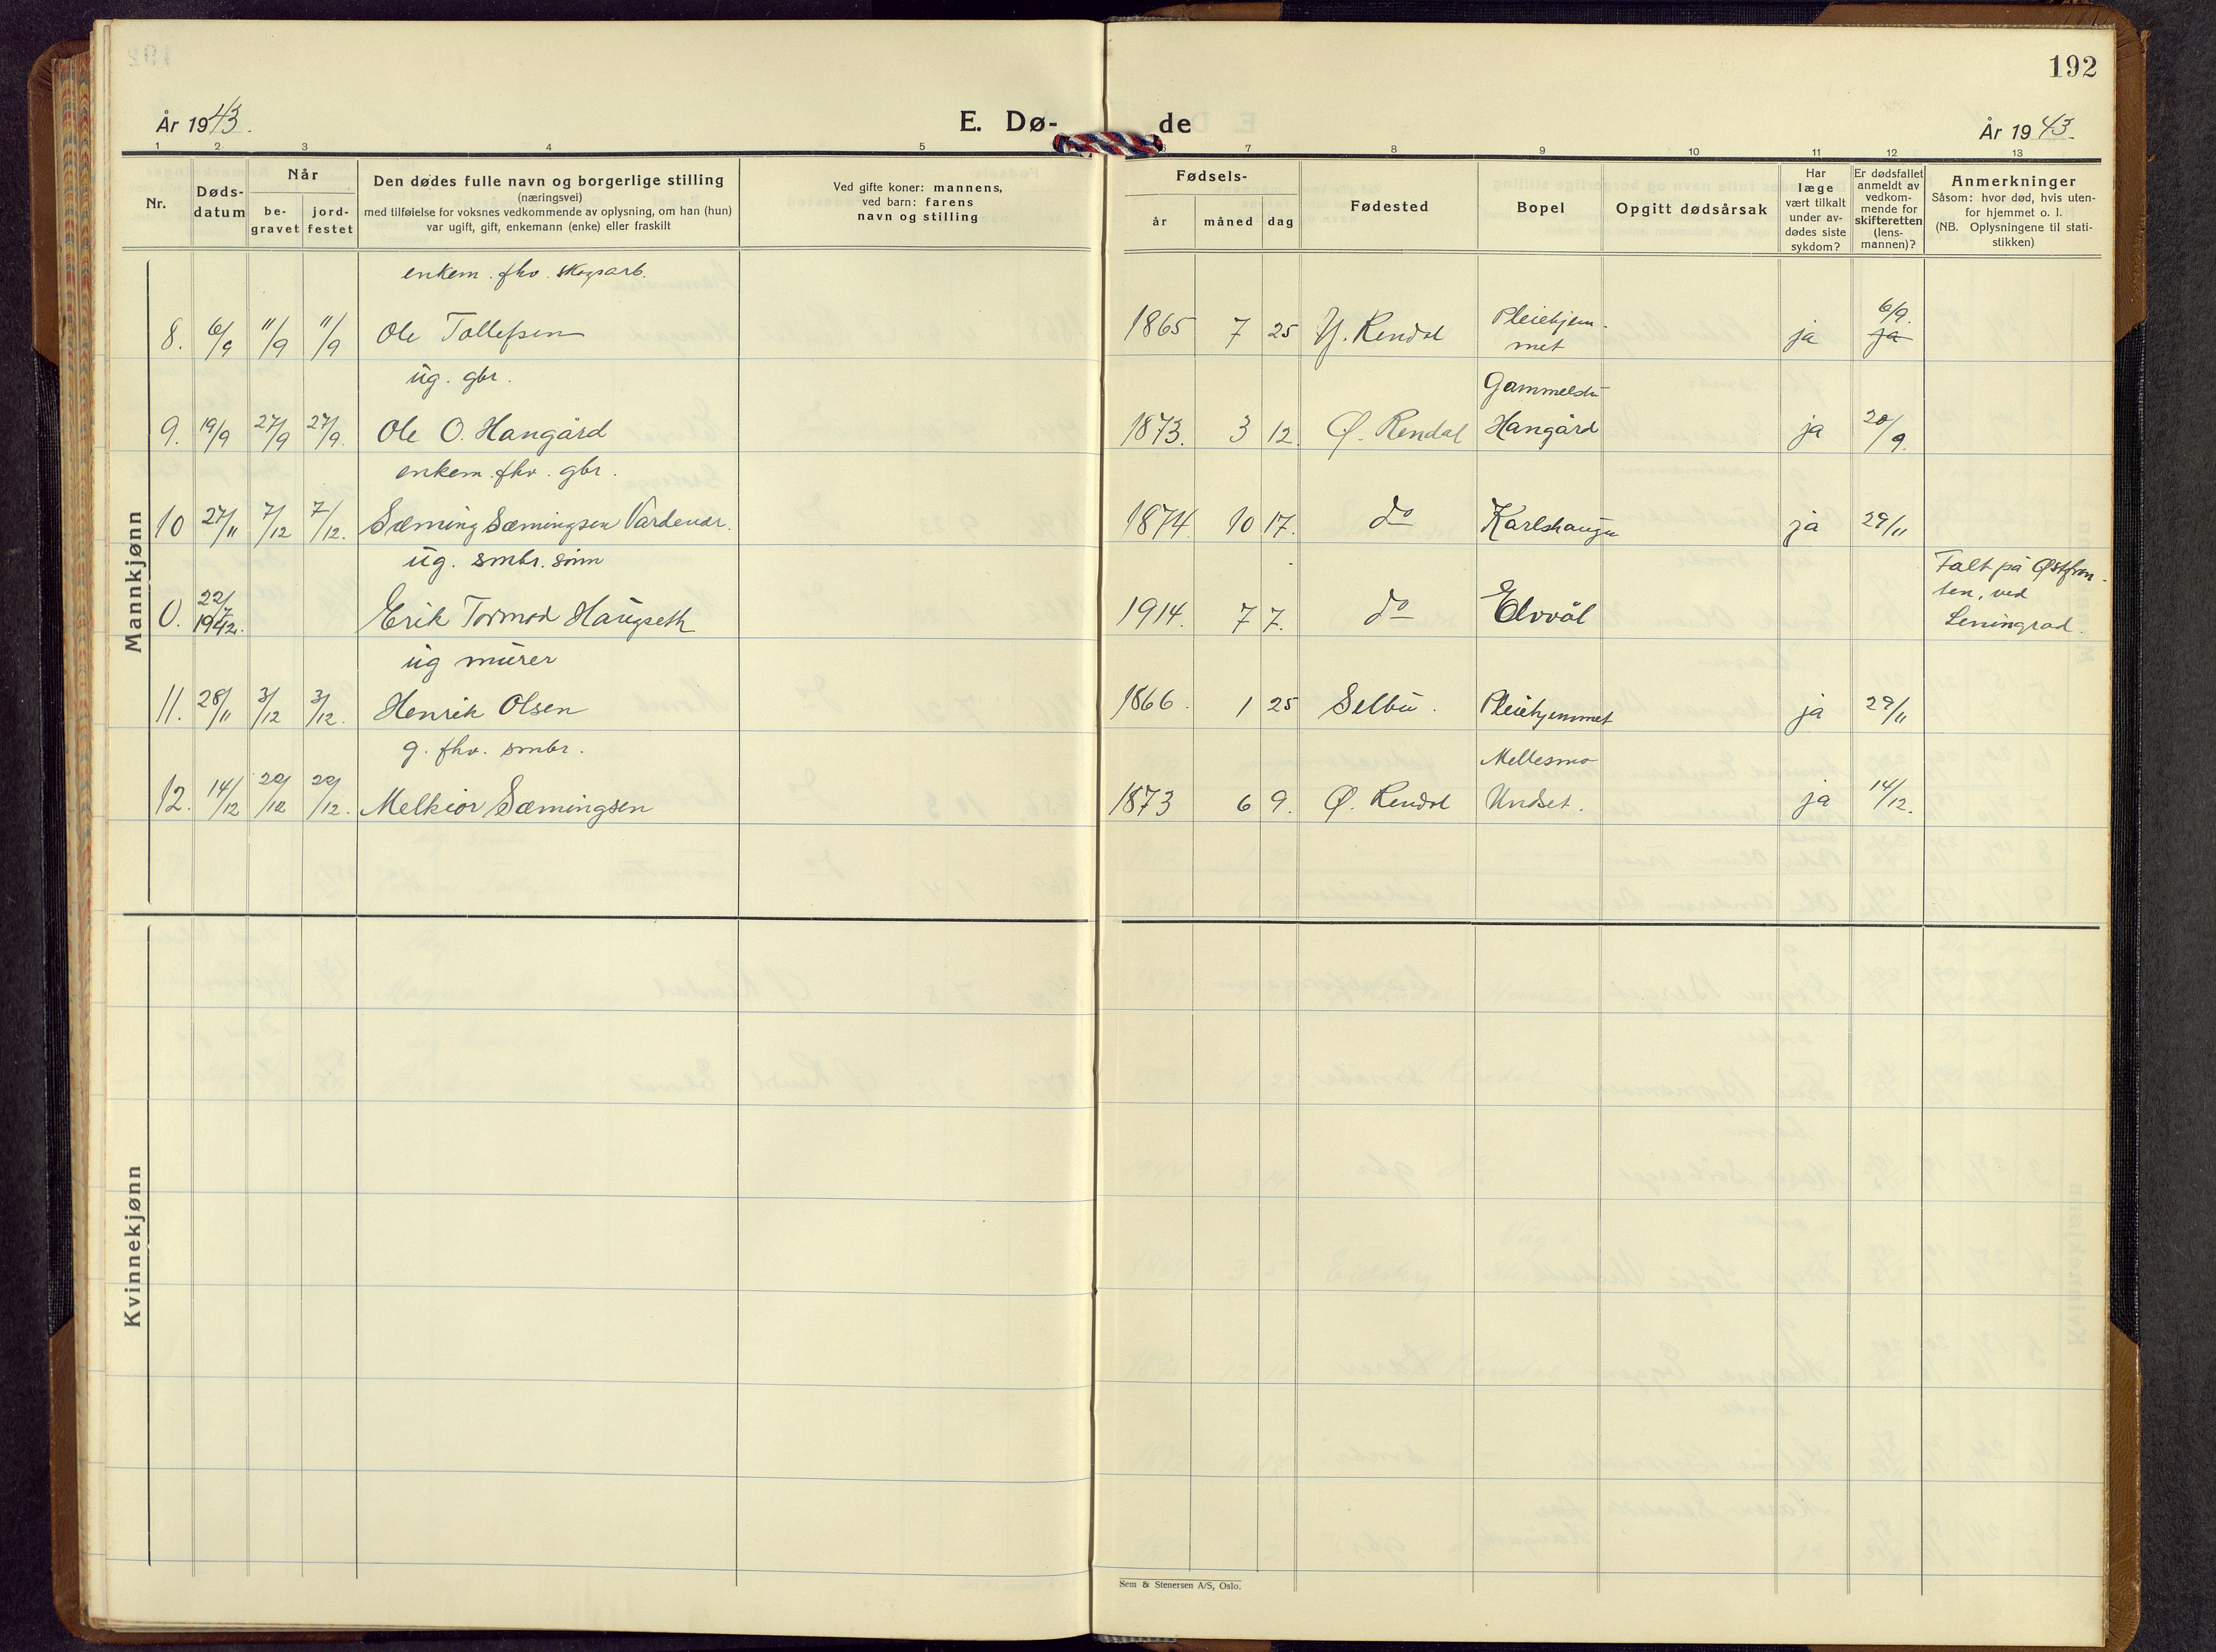 192
År 1943.
E. Dø-
de
År 1943.
1 2 3 4 5 6 7 8 9 10 11 12 13
Nr.
Døds-
datum
Når
be-
gravet
jord-
festet
Den dødes fulle navn og borgerlige stilling
(næringsvei)
med tilføielse for voksnes vedkommende av oplysning, om han (hun)
var ugift, gift, enkemann (enke) eller fraskilt
Ved gifte koner: mannens,
ved barn: farens
navn og stilling
Fødsels-
år måned dag
Fødested
Bopel
Opgitt dødsårsak
Har
læge
vært tilkalt
under av-
dødes siste
sykdom?
Er dødsfallet
anmeldt av
vedkom-
mende for
skifteretten
(lens-
mannen)?
Anmerkninger
Såsom: hvor død, hvis uten-
for hjemmet o. l.
(NB. Oplysningene til stati-
stikken)
Mannkjønn
enkem. fhv. skogsarb.
8. 6/9 11/9 11/9 Ole Tollefsen 1865 7 25 Y. Rendal Pleiehjem-
met ja 6/9. ja
ug. gbr. Gammelstu
9. 19/9 27/9 27/9. Ole O. Hangård 1873. 3 12. Ø. Rendal Hangård ja 20/9.
enkem. fhv. gbr.
10 27/11 7/12 7/12. Sæming Sæmingsen Vardenær. 1874. 10 17. do Karlshaugen ja 29/11
ug. smbr. sønn
0. 22/7 1942. Erik Tormod Haugseth 1914. 7 7. do Elvål Falt på Østfron-
ten, ved
Leningrad.
ug murer
11. 28/11 3/12 3/12. Henrik Olsen 1866. 1 25 Selbu. Pleiehjemmet ja 29/11
g. fhv. smbr. Mellesmo
12. 14/12 22/12 22/12. Melkior Sæmingsen 1873 6 9. Ø. Rendal Undset. ja 14/12.
Kvinnekjønn
Sem & Stenersen A/S, Oslo.